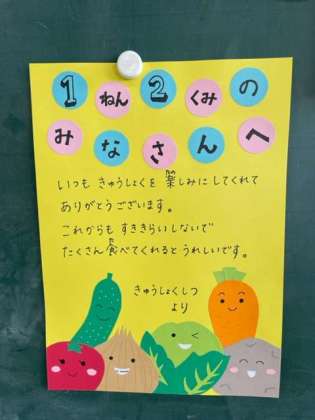 1ねん2くみの
みなさんへ
いつも きゅうしょくを 楽しみにしてくれて
ありがとうございます。
これからも すききらいしないで
たくさん 食べてくれると うれしいです。
きゅうしょくしつ
より